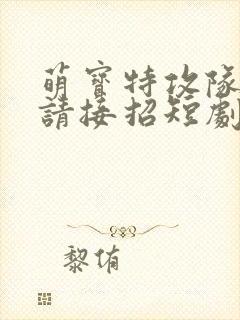 萌寶特攻隊
請接招短劇
黎侑